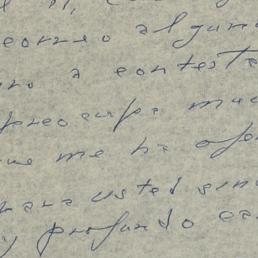 correo algun
a contesta
preocupa muc
me ha ofe
para usted sin
y profundo ca